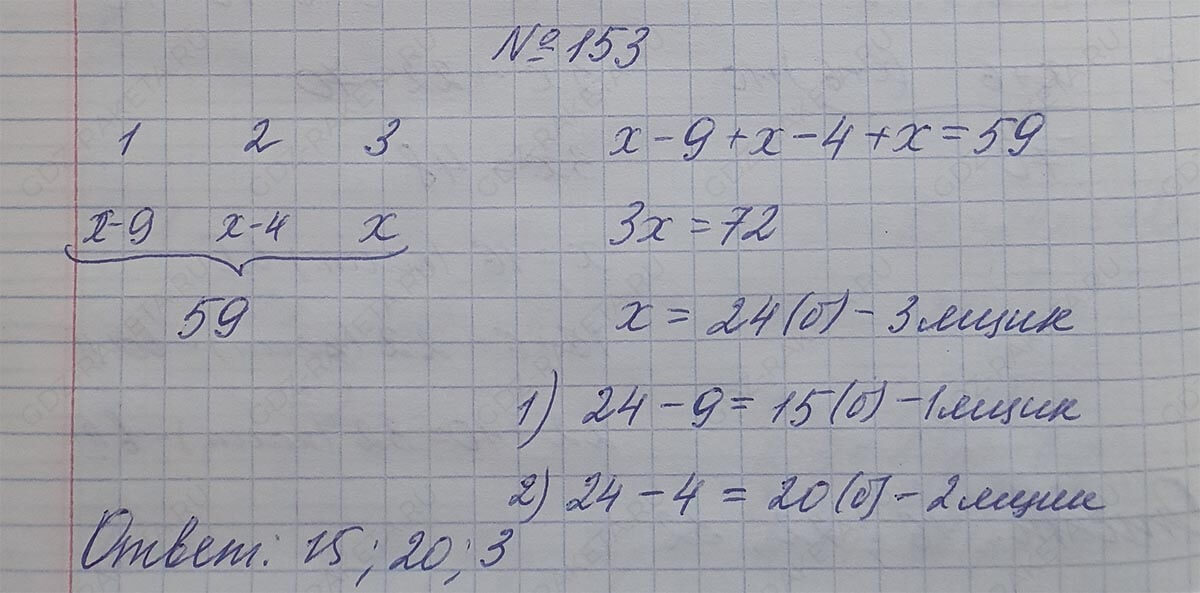 №153
1 2 3
x-9 x-4 x
59
x-9+x-4+x=59
3x=72
x=24(б)-3ящик
1) 24-9=15(б)-1ящик
2) 24-4=20(б)-2ящик
Ответ: 15; 20; 3